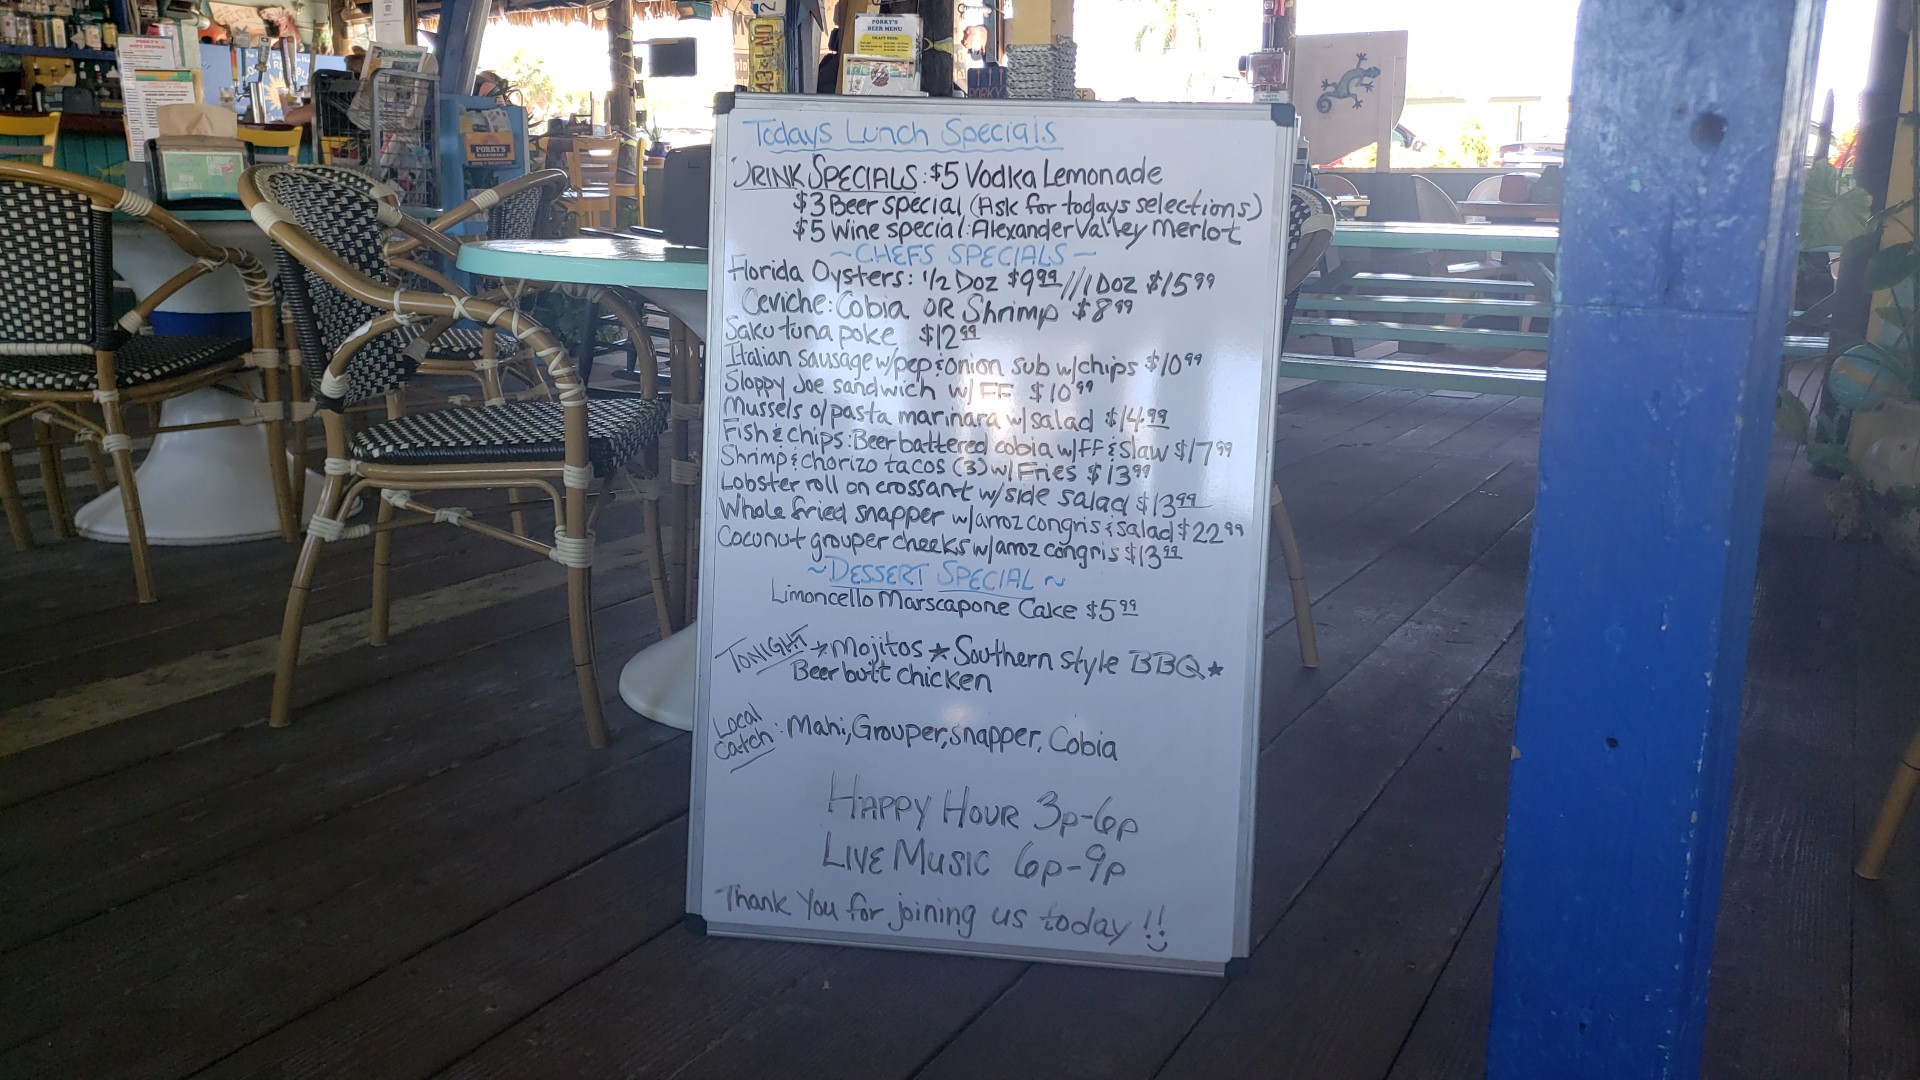 PORKY'S
BEER MENU
Todays Lunch Specials
DRINK SPECIALS: $5 Vodka Lemonade
$3 Beer special (Ask for todays selections)
$5 Wine special: Alexander Valley Merlot
~CHEFS SPECIALS~
Florida Oysters: 1/2 Doz $9.99 /// 1 Doz $15.99
Ceviche: Cobia OR Shrimp $8.99
Saku tuna poke $12.99
Italian sausage w/pep & onion sub w/chips $10.99
Sloppy Joe sandwich w/ FF $10.99
Mussels o/pasta marinara w/salad $14.99
Fish & chips: Beer battered cobia w/FF & Slaw $17.99
Shrimp & chorizo tacos (3) w/ Fries $13.99
Lobster roll on crossant w/side salad $13.99
Whole fried snapper w/arroz congris & salad $22.99
Coconut grouper cheeks w/arroz congris $13.99
~DESSERT SPECIAL~
Limoncello Marscapone Cake $5.99
TONIGHT ★ Mojitos ★ Southern Style BBQ ★
Beer butt chicken
Local
Catch: Mahi, Grouper, snapper, Cobia
HAPPY HOUR 3p-6p
LIVE MUSIC 6p-9p
Thank You for joining us today!!